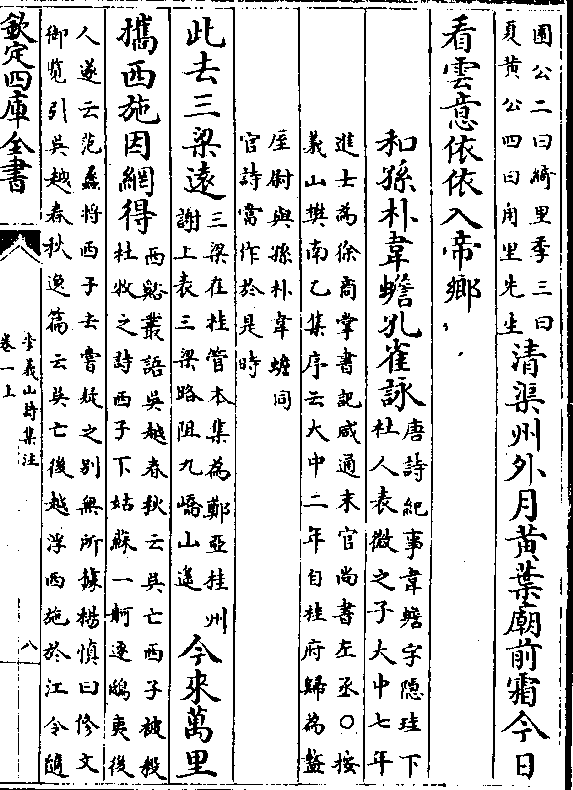 園公二曰綺里季三曰
夏黃公四曰甪里先生
清渠州外月黃葉廟前霜今日
看雲意依依入帝鄉
和孫朴韋蟾孔雀詠
唐詩紀事韋蟾字隱珪下
杜人表微之子大中七年
進士為徐商掌書記咸通末官尚書左丞○按
義山樊南乙集序云大中二年自桂府歸為盩
厔尉與孫朴韋蟾同
官詩當作於是時
此去三梁遠
三梁在桂管本集為鄭亞桂州
謝上表三梁路阻九嶠山遙
今來萬里
攜西施因網得
西谿叢語吳越春秋云吳亡西子被殺
杜牧之詩西子下姑蘇一舸逐鴟夷後
人遂云范蠡將西子去嘗疑之別無所據楊慎曰修文
御覽引吳越春秋逸篇云吳亡後越浮西施於江令隨
欽定四庫全書
李義山詩集注
卷一上
八